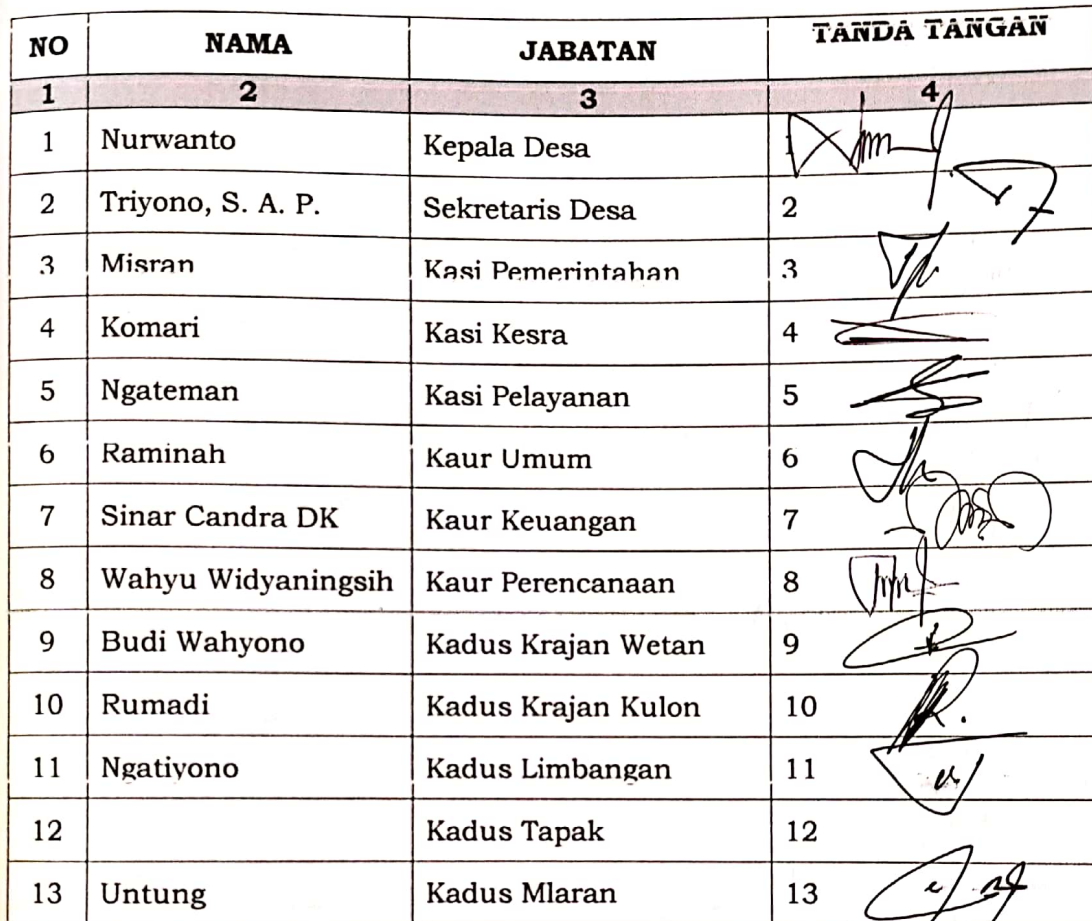 NO NAMA JABATAN TANDA TANGAN
1 2 3 4
1 Nurwanto Kepala Desa 1
2 Triyono, S. A. P. Sekretaris Desa 2
3 Misran Kasi Pemerintahan 3
4 Komari Kasi Kesra 4
5 Ngateman Kasi Pelayanan 5
6 Raminah Kaur Umum 6
7 Sinar Candra DK Kaur Keuangan 7
8 Wahyu Widyaningsih Kaur Perencanaan 8
9 Budi Wahyono Kadus Krajan Wetan 9
10 Rumadi Kadus Krajan Kulon 10
11 Ngatiyono Kadus Limbangan 11
12 Kadus Tapak 12
13 Untung Kadus Mlaran 13